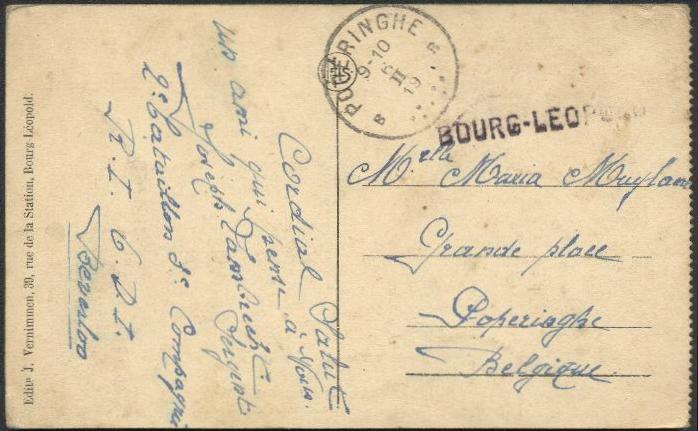 POPERINGHE
B
9-10
II
19
B
BOURG-LEOPOLD
Mᵉˡˡᵃ Maria Muylaert
Grande place
Poperinghe
Belgique
Cordial Salut
un ami qui pense à Vous.
Joseph Lambrecht
Sergent
2ᵉ bataillon 3ᵉ Compagnie
R. I. C. D. I.
Beverloo
Editʳ J. Vernimmen, 39, rue de la Station, Bourg-Léopold.